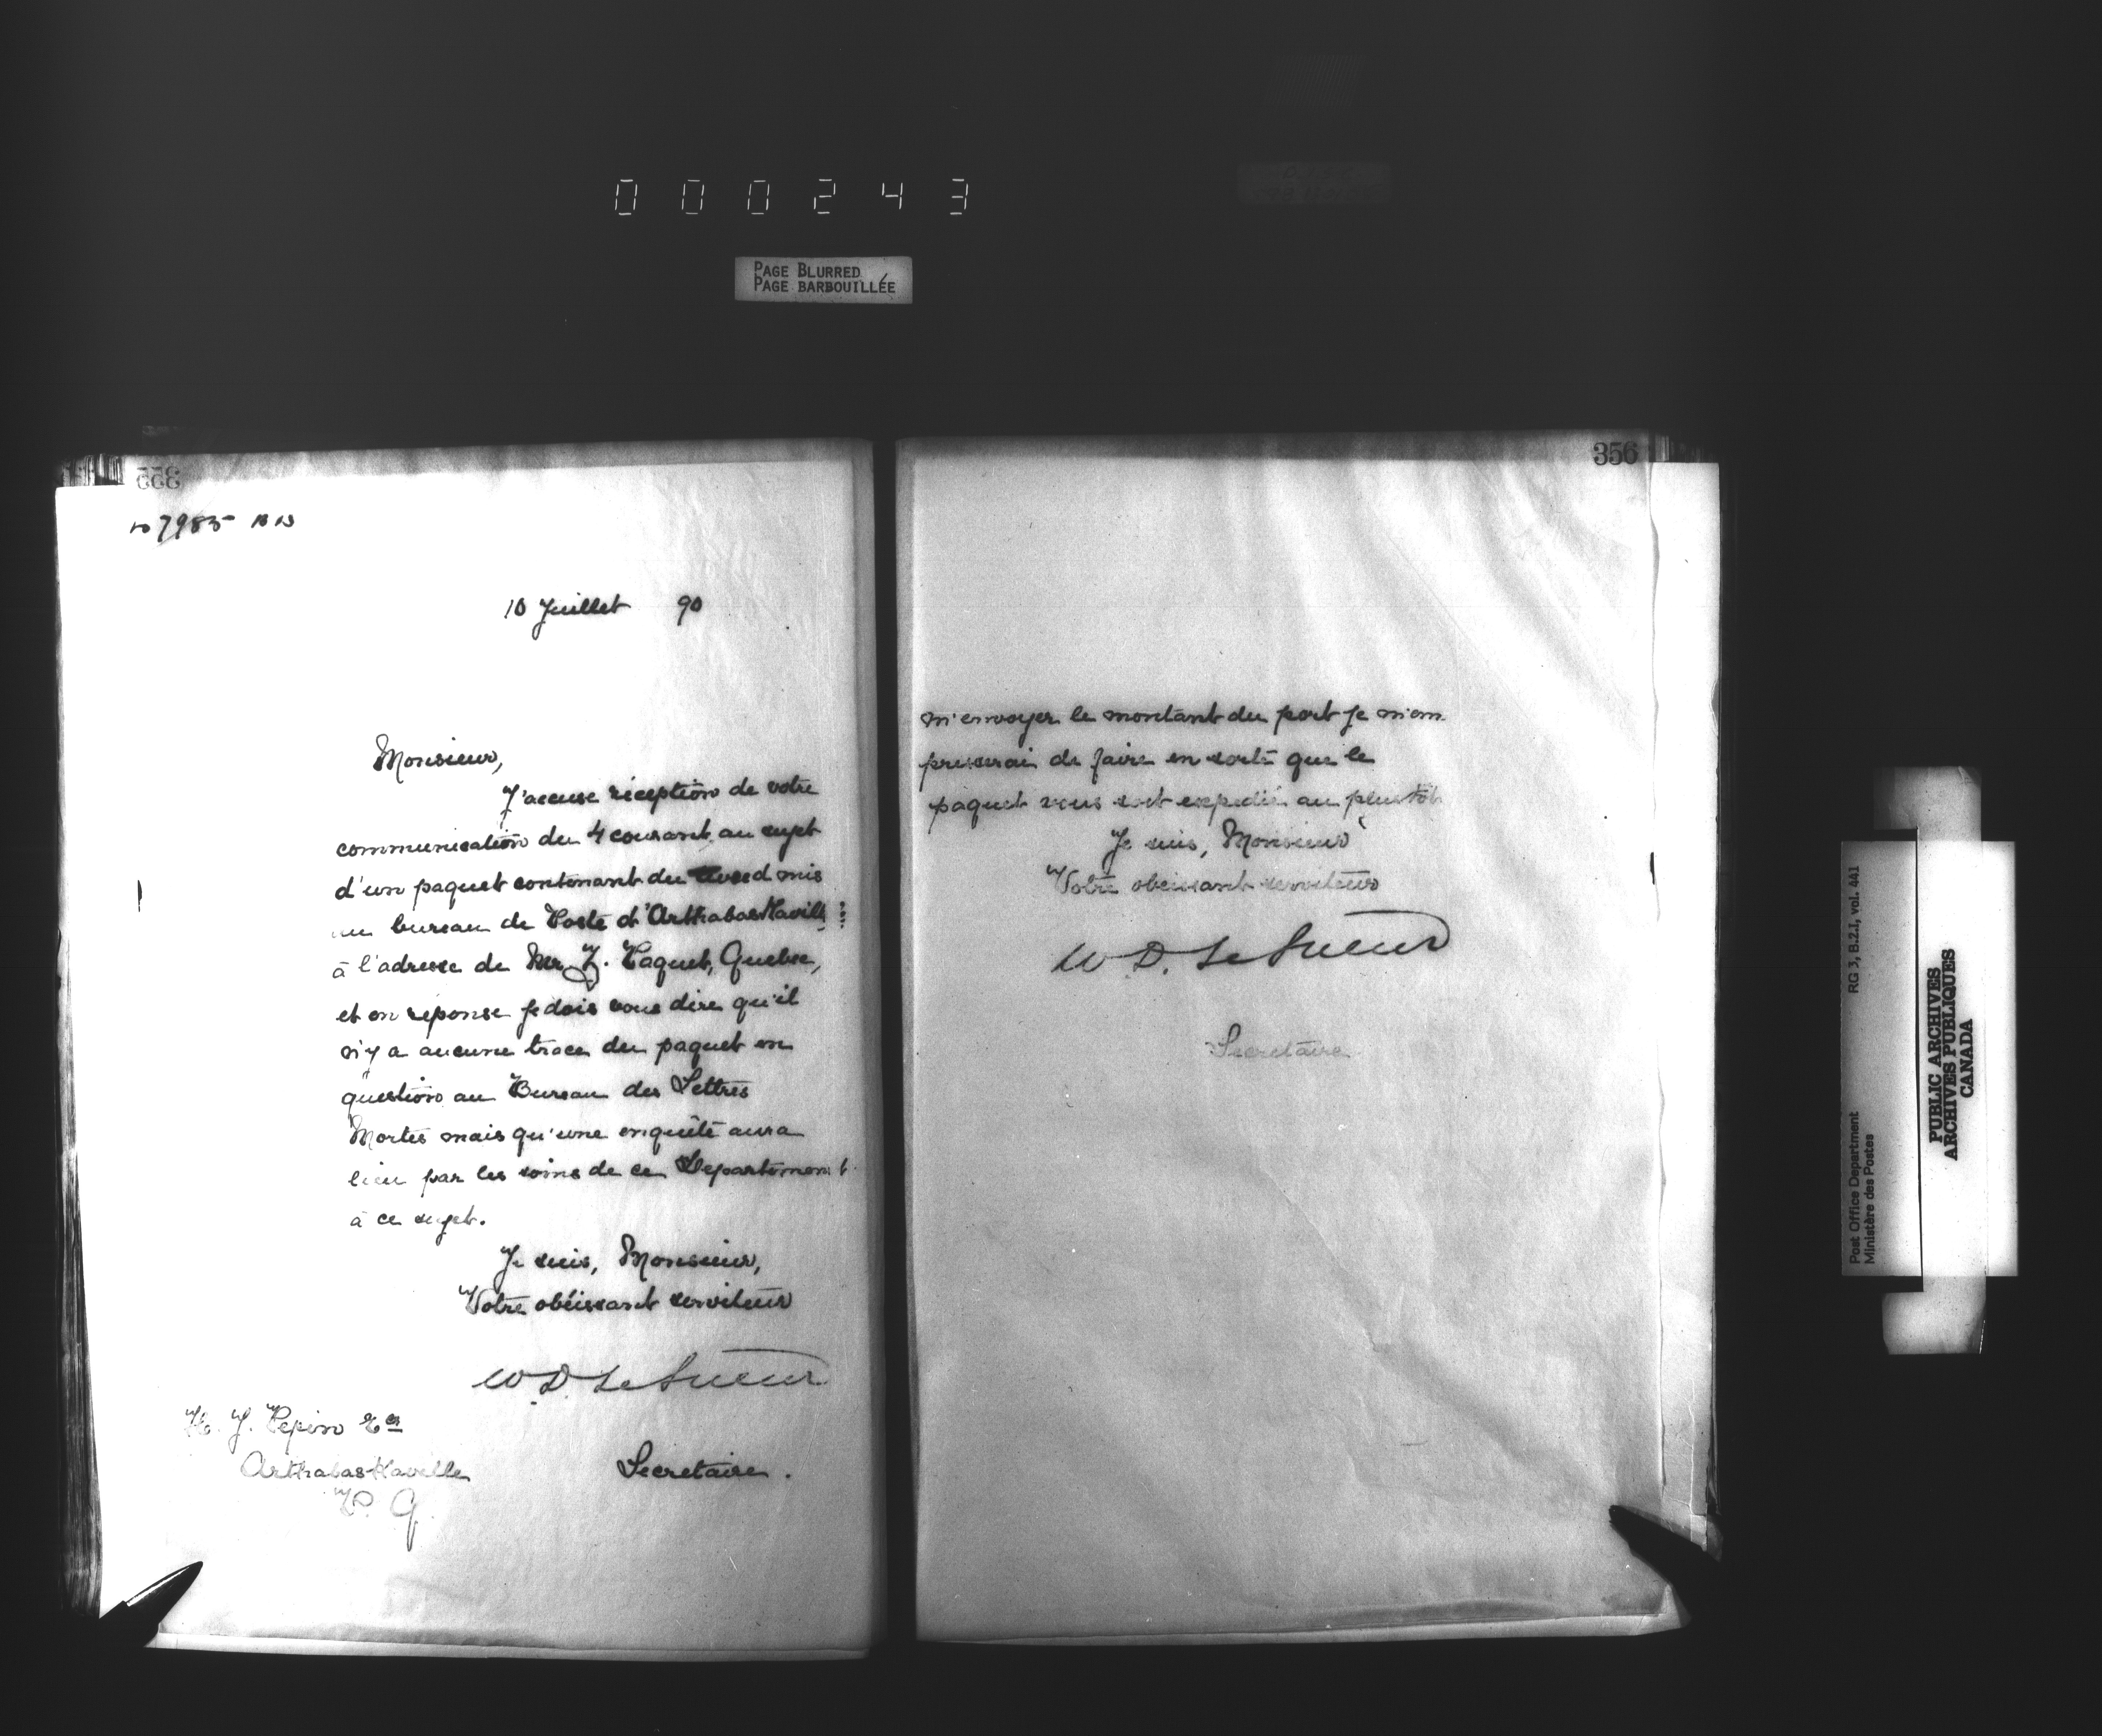 000243
PAGE BLURRED
PAGE BARBOUILLÉE
355
No 7985
10 Juillet 90
Monsieur,
J'accuse réception de votre
communication du 4 courant au sujet
d'un paquet contenant du mis
au bureau de Poste d'Arthabaskaville
à l'adresse de Mr. J. Paquet, Quebec,
et en réponse je dois vous dire qu'il
n'y a aucune trace du paquet en
question au Bureau des Lettres
Mortes mais qu'une enquête aura
lieu par les soins de ce Departement
à ce sujet.
Je suis, Monsieur,
Votre obéissant serviteur
W D. Le Sueur
H. J. Pepin Ecr
Arthabaskaville
P. Q.
Secretaire.
356
m'envoyer le montant du port je m'em
presserai de faire en sorte que le
paquet vous soit expedié au plus tôt
Je suis, Monsieur
Votre obeissant serviteur
W. D. Le Sueur
Secretaire
RG 3, B.2.1, vol. 441
Post Office Department
Ministère des Postes
PUBLIC ARCHIVES
ARCHIVES PUBLIQUES
CANADA